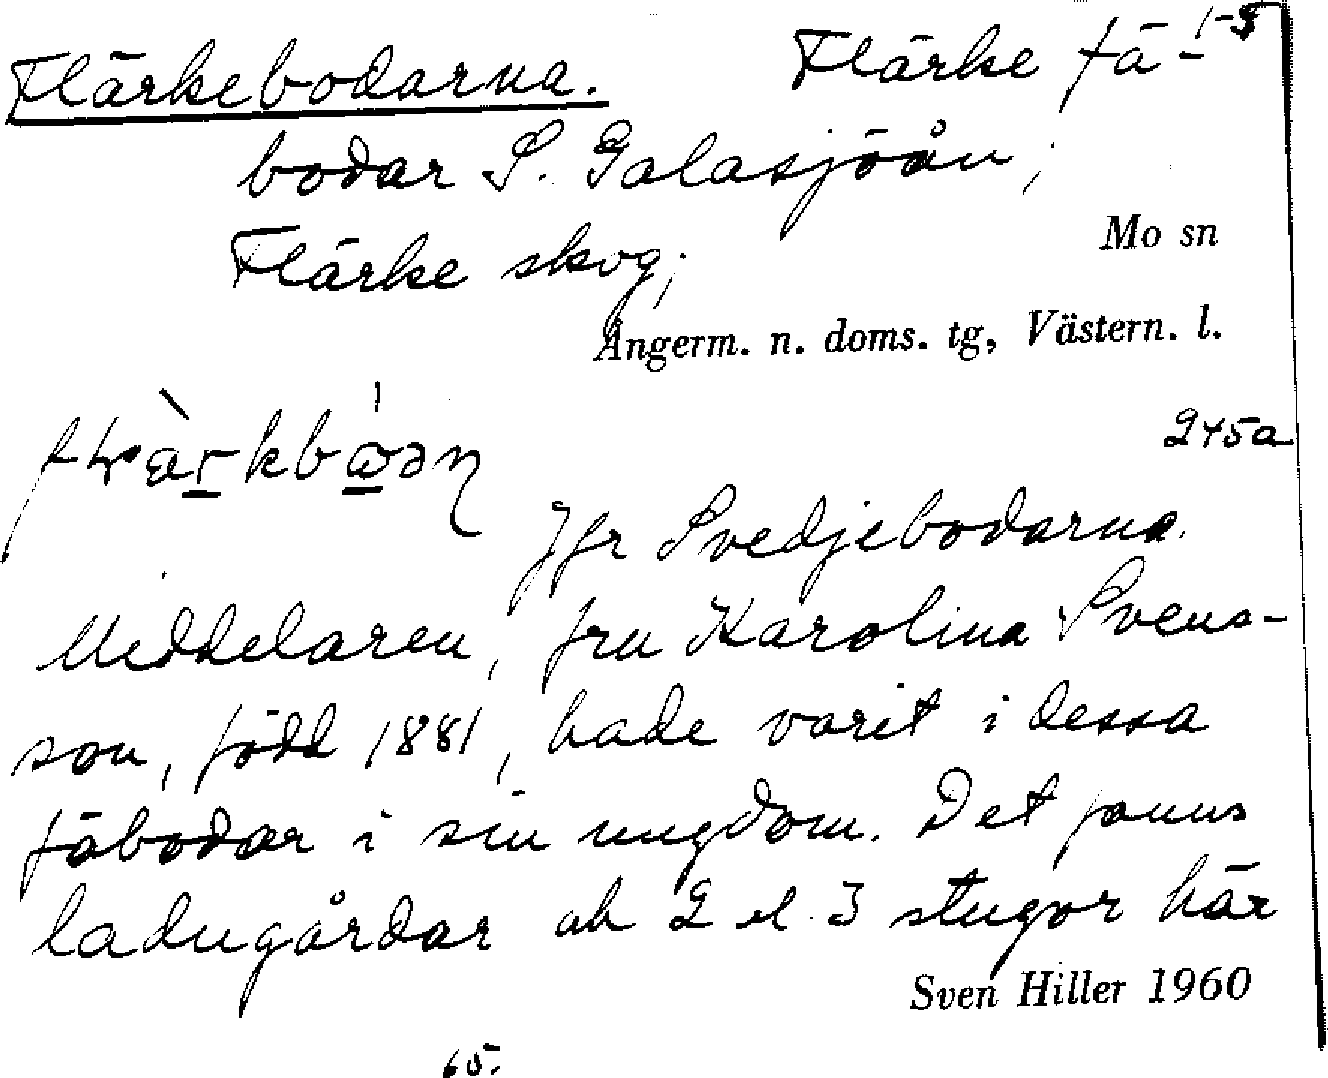 1-3
Flärkebodarna. Flärke fä-
bodar S. Galasjöån;
Flärke skog;
Mo sn
Ångerm. n. doms. tg, Västern. l.
245a
Jfr Svedjebodarna.
Meddelaren, fru Karolina Svens-
son, född 1881, hade varit i dessa
fäbodar i sin ungdom. Det fanns
ladugårdar och 2 el. 3 stugor här
Sven Hiller 1960
65.